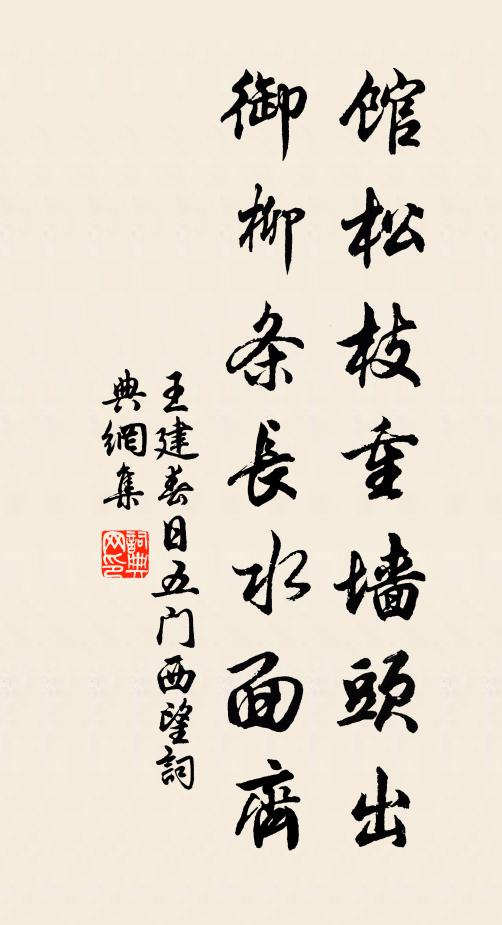 馆松枝重墙頭出
御柳条長水面齊
王建春日五门西望詞
典網集
詞典网印